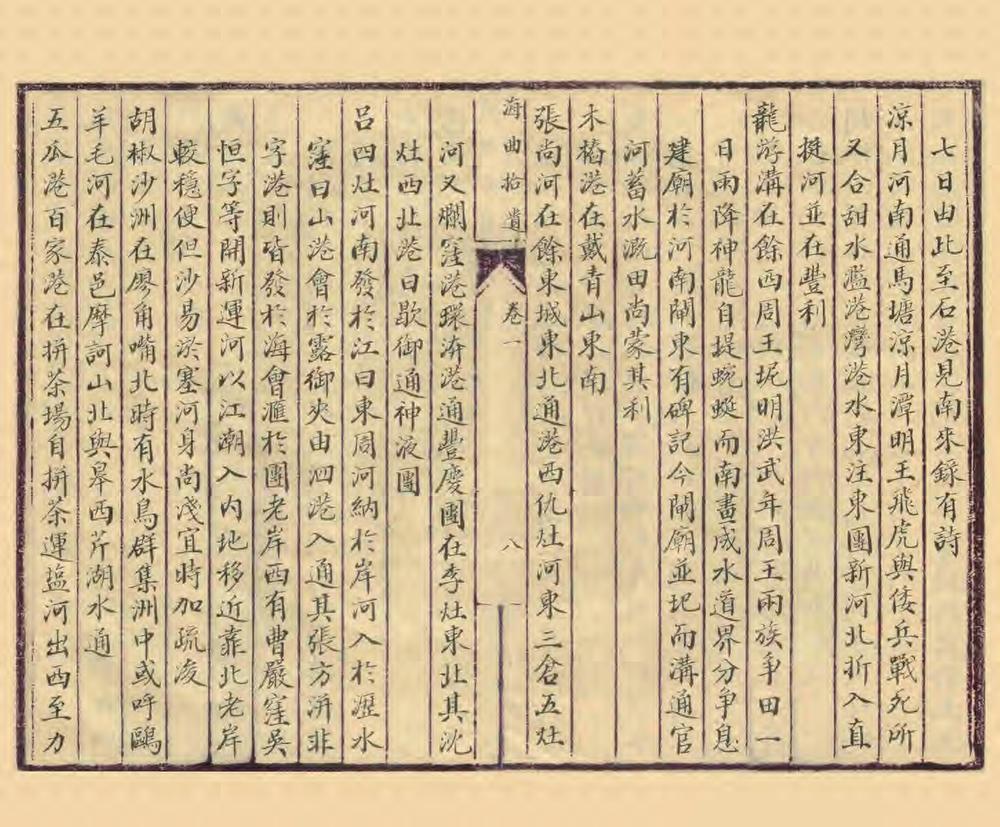 七日由此至石港見南來錄有詩
凉月河南通馬塘凉月潭明王飛虎與倭兵戰死所
又合甜水㶕港灣港水東注東團新河北折入直
挺河並在豐利
龍游溝在餘西周王坭明洪武年周王兩族爭田一
日雨降神龍自堤蜿蜒而南畫成水道界分爭息
建廟於河南閘東有碑記今閘廟並圮而溝通官
河蓄水溉田尚蒙其利
木樁港在戴青山東南
張尚河在餘東城東北通港西仇灶河東三倉五灶
海曲拾遺 卷一 八
河又爛窪港環漭港通豐慶團在李灶東北其沈
灶西北港曰歇御通神液團
呂四灶河南發於江曰東周河納於岸河入於瀝水
窪曰山港會於露御夾由泗港入通其張方洴非
字港則皆發於海會滙於團老岸西有曹嚴窪吳
恒字等開新運河以江潮入内地移近靠北老岸
較穩便但沙易淤塞河身尚淺宜時加疏浚
胡椒沙洲在廖角嘴北時有水鳥群集洲中或呼鷗
羊毛河在泰邑摩訶山北與皋西芹湖水通
五瓜港百家港在拼茶場自拼茶運塩河出西至力